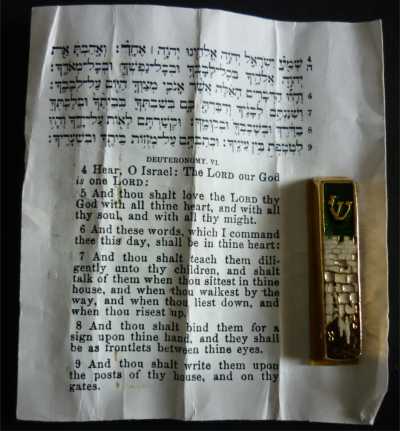 4 שְׁמַע יִשְׂרָאֵל יְהֹוָה אֱלֹהֵינוּ יְהֹוָה ׀ אֶחָד׃ וְאָהַבְתָּ אֵת
ה יְהֹוָה אֱלֹהֶיךָ בְּכָל־לְבָבְךָ וּבְכָל־נַפְשְׁךָ וּבְכָל־מְאֹדֶךָ׃
6 וְהָיוּ הַדְּבָרִים הָאֵלֶּה אֲשֶׁר אָנֹכִי מְצַוְּךָ הַיּוֹם עַל־לְבָבֶךָ׃
7 וְשִׁנַּנְתָּם לְבָנֶיךָ וְדִבַּרְתָּ בָּם בְּשִׁבְתְּךָ בְּבֵיתֶךָ וּבְלֶכְתְּךָ
8 בַדֶּרֶךְ וּבְשָׁכְבְּךָ וּבְקוּמֶךָ׃ וּקְשַׁרְתָּם לְאוֹת עַל־יָדֶךָ וְהָיוּ
9 לְטֹטָפֹת בֵּין עֵינֶיךָ׃ וּכְתַבְתָּם עַל־מְזוּזֹת בֵּיתֶךָ וּבִשְׁעָרֶיךָ׃
DEUTERONOMY. VI.
4 Hear, O Israel: The LORD our God
is one LORD:
5 And thou shalt love the LORD thy
God with all thine heart, and with all
thy soul, and with all thy might.
6 And these words, which I command
thee this day, shall be in thine heart:
7 And thou shalt teach them dili-
gently unto thy children, and shalt
talk of them when thou sittest in thine
house, and when thou walkest by the
way, and when thou liest down, and
when thou risest up.
8 And thou shalt bind them for a
sign upon thine hand, and they shall
be as frontlets between thine eyes.
9 And thou shalt write them upon
the posts of thy house, and on thy
gates.
ש